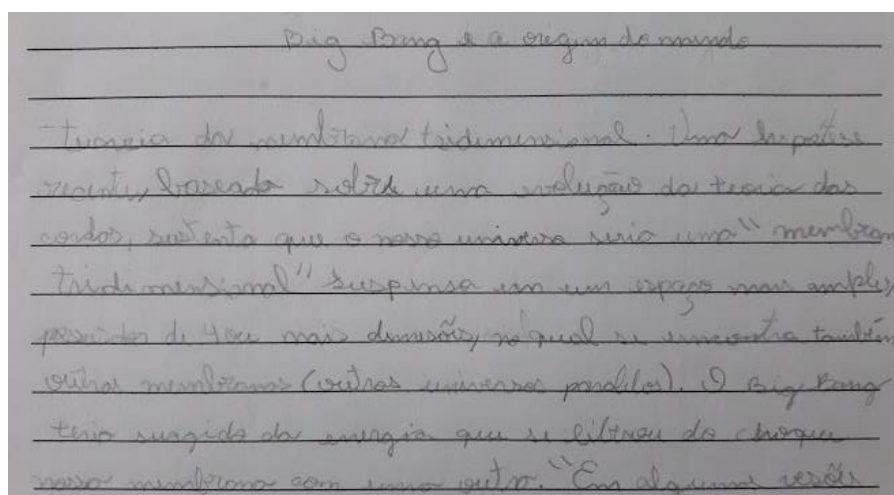 Big Bang e a origem do mundo
tueoria da membrana tridimensional. Uma hipotese
recente, baseada sobre uma evolução da teoria das
cordas, sustenta que o nosso universo seria uma "membran
tridimensional" suspensa em um espaço mais amplo,
possuidor de 4 ou mais dimesões, no qual se encontra também
outras membranas (outros universos paralelos). O Big Bang
teria surgido da energia que se do choque
nossa membrana com uma outra. "Em algumas vesões